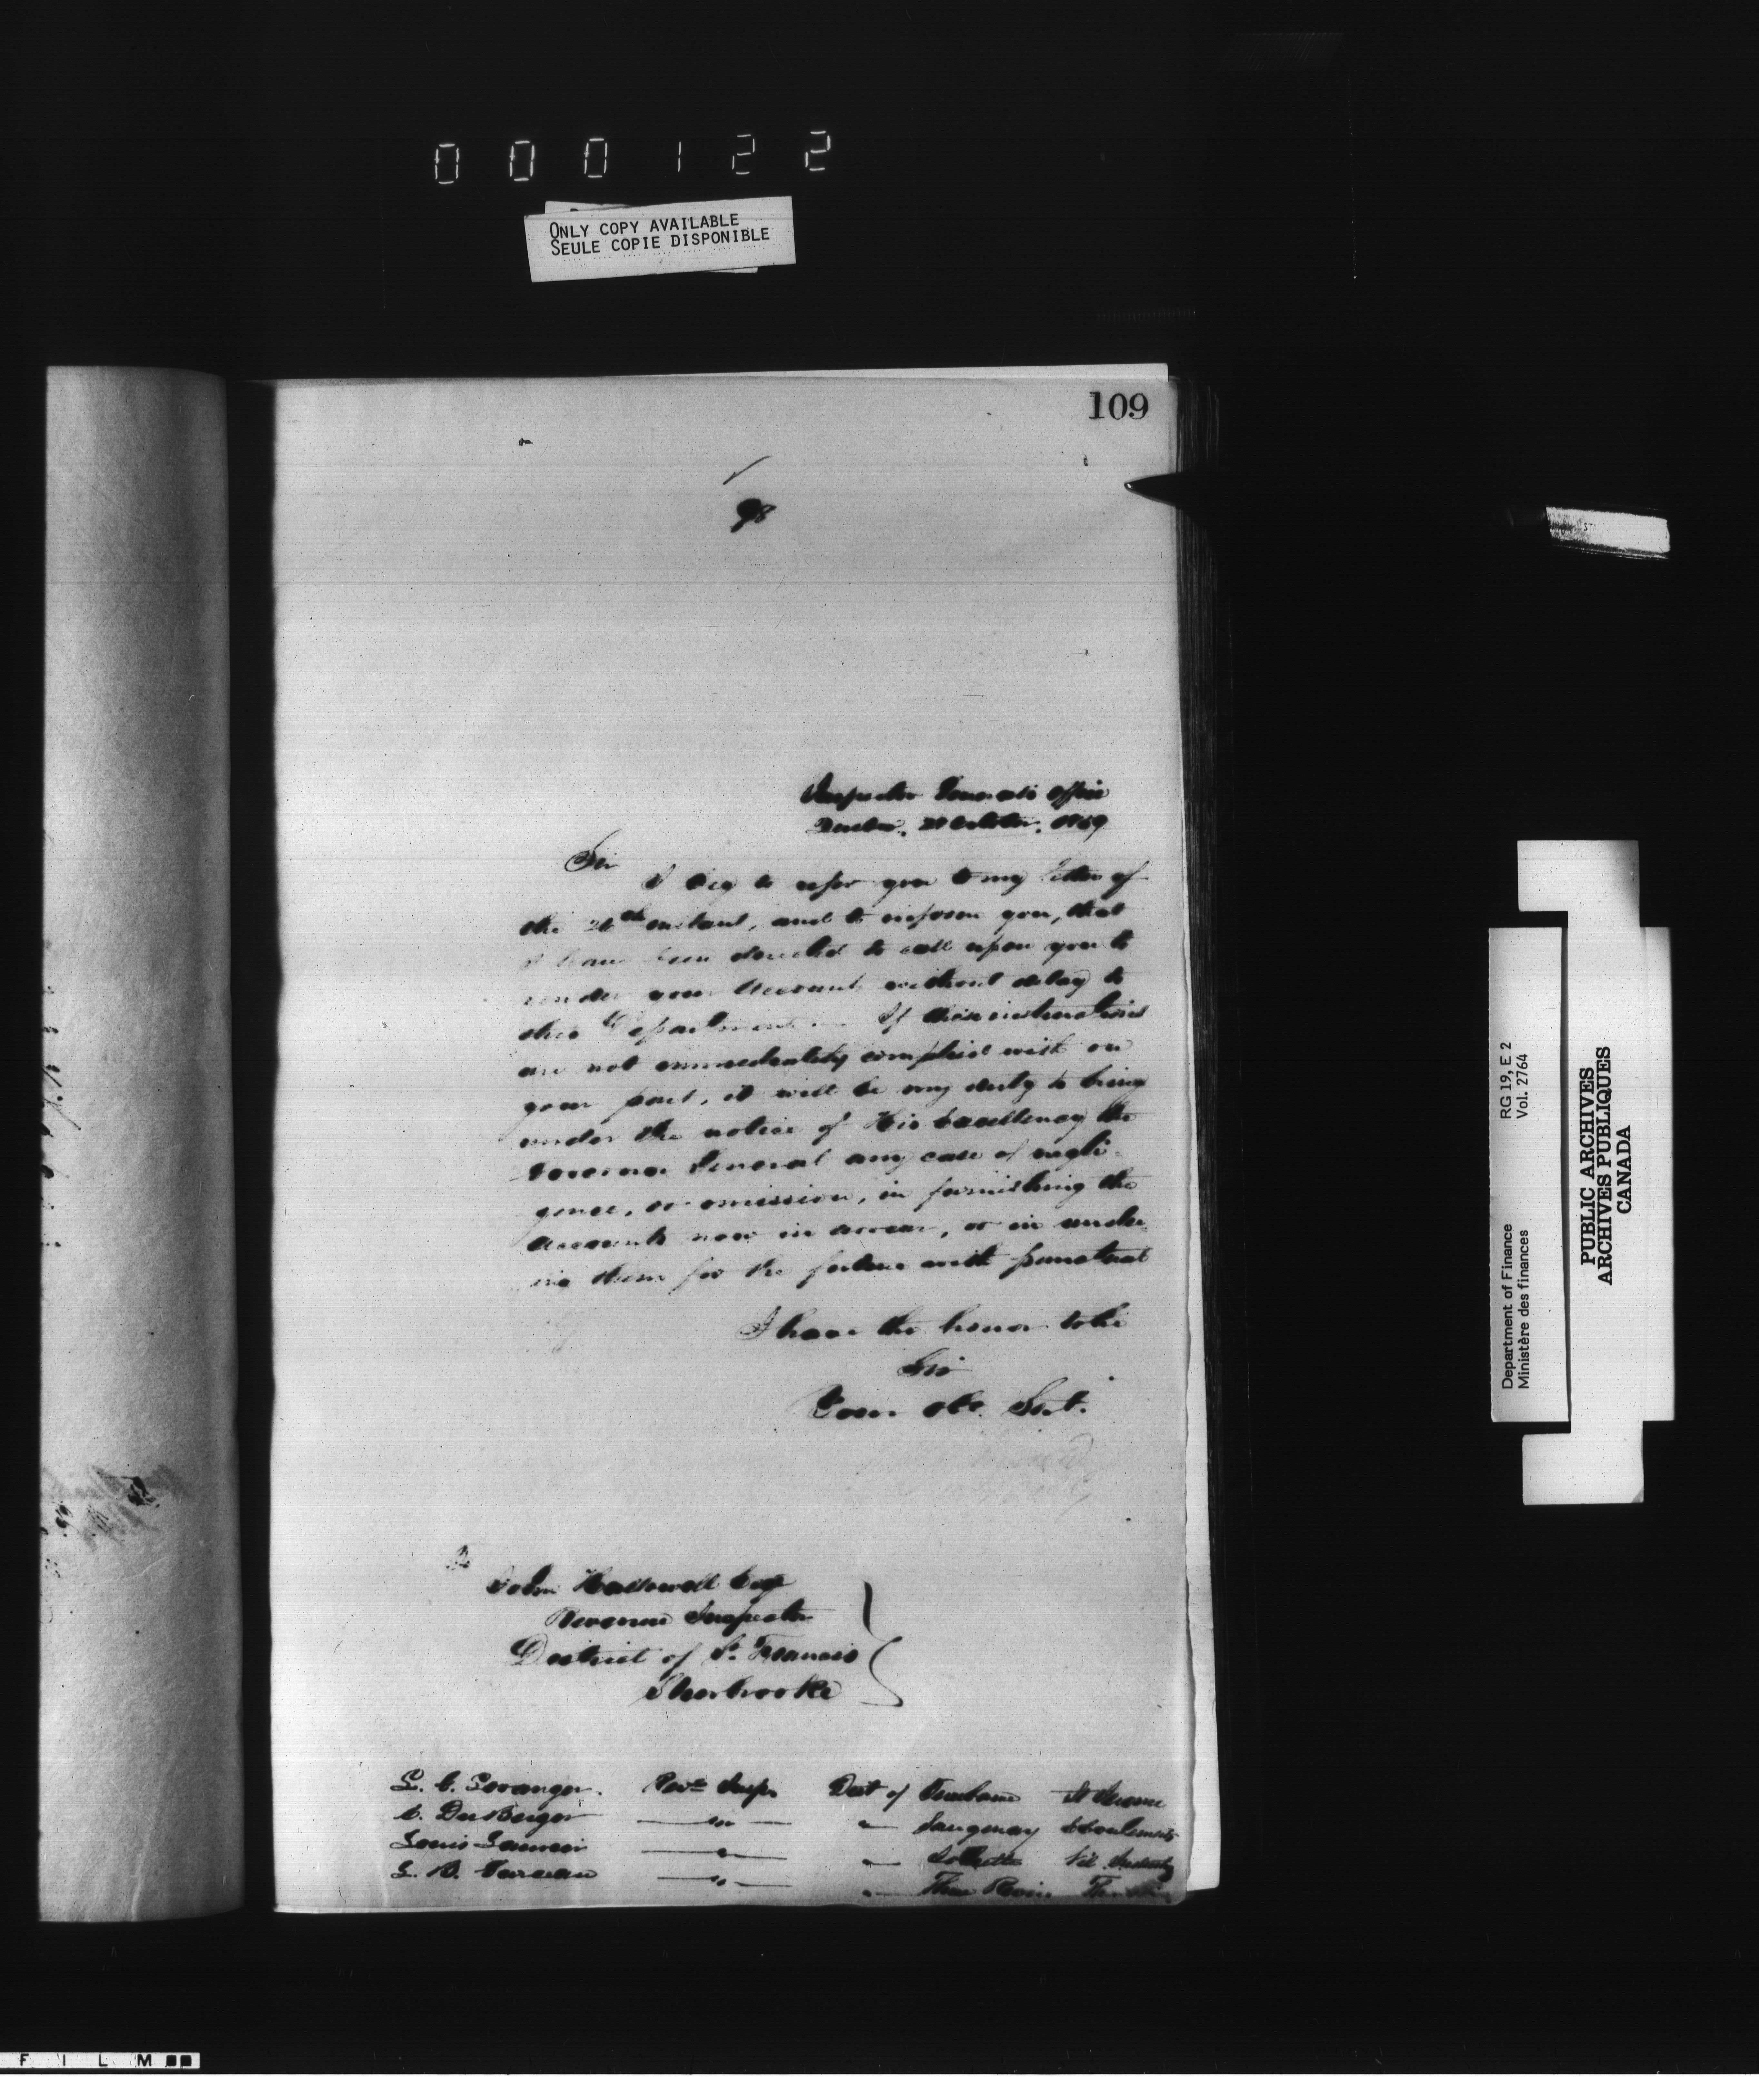 000122
ONLY COPY AVAILABLE
SEULE COPIE DISPONIBLE
109
98
Inspector General's Office
Quebec, October, 1859
Sir
I beg to refer you to my letter of
the 26th instant, and to inform you, that
I have been directed to call upon you to
render your Accounts without delay to
this Department. If these instructions
are not immediately complied with on
your part, it will be my duty to bring
under the notice of His Excellency the
Governor General any case of negli-
gence, or omission, in furnishing the
accounts now in arrear, or in render
ing them for the future with punctual
I have the honor to be
Sir
Your Obt. Servt.
John Hallowell Esqr
Revenue Inspector
District of St. Francis
Sherbrooke
L. C. Loranger. Reve Inspr Dist of Terrebonne St Jerome
C. DuBerger — " — " Saugenay Eboulements
Louis — " — " Joliette Vil. Industry
L. — " — " Three Rivers
RG 19, E 2
Vol. 2764
Department of Finance
Ministère des finances
PUBLIC ARCHIVES
ARCHIVES PUBLIQUES
CANADA
FILM